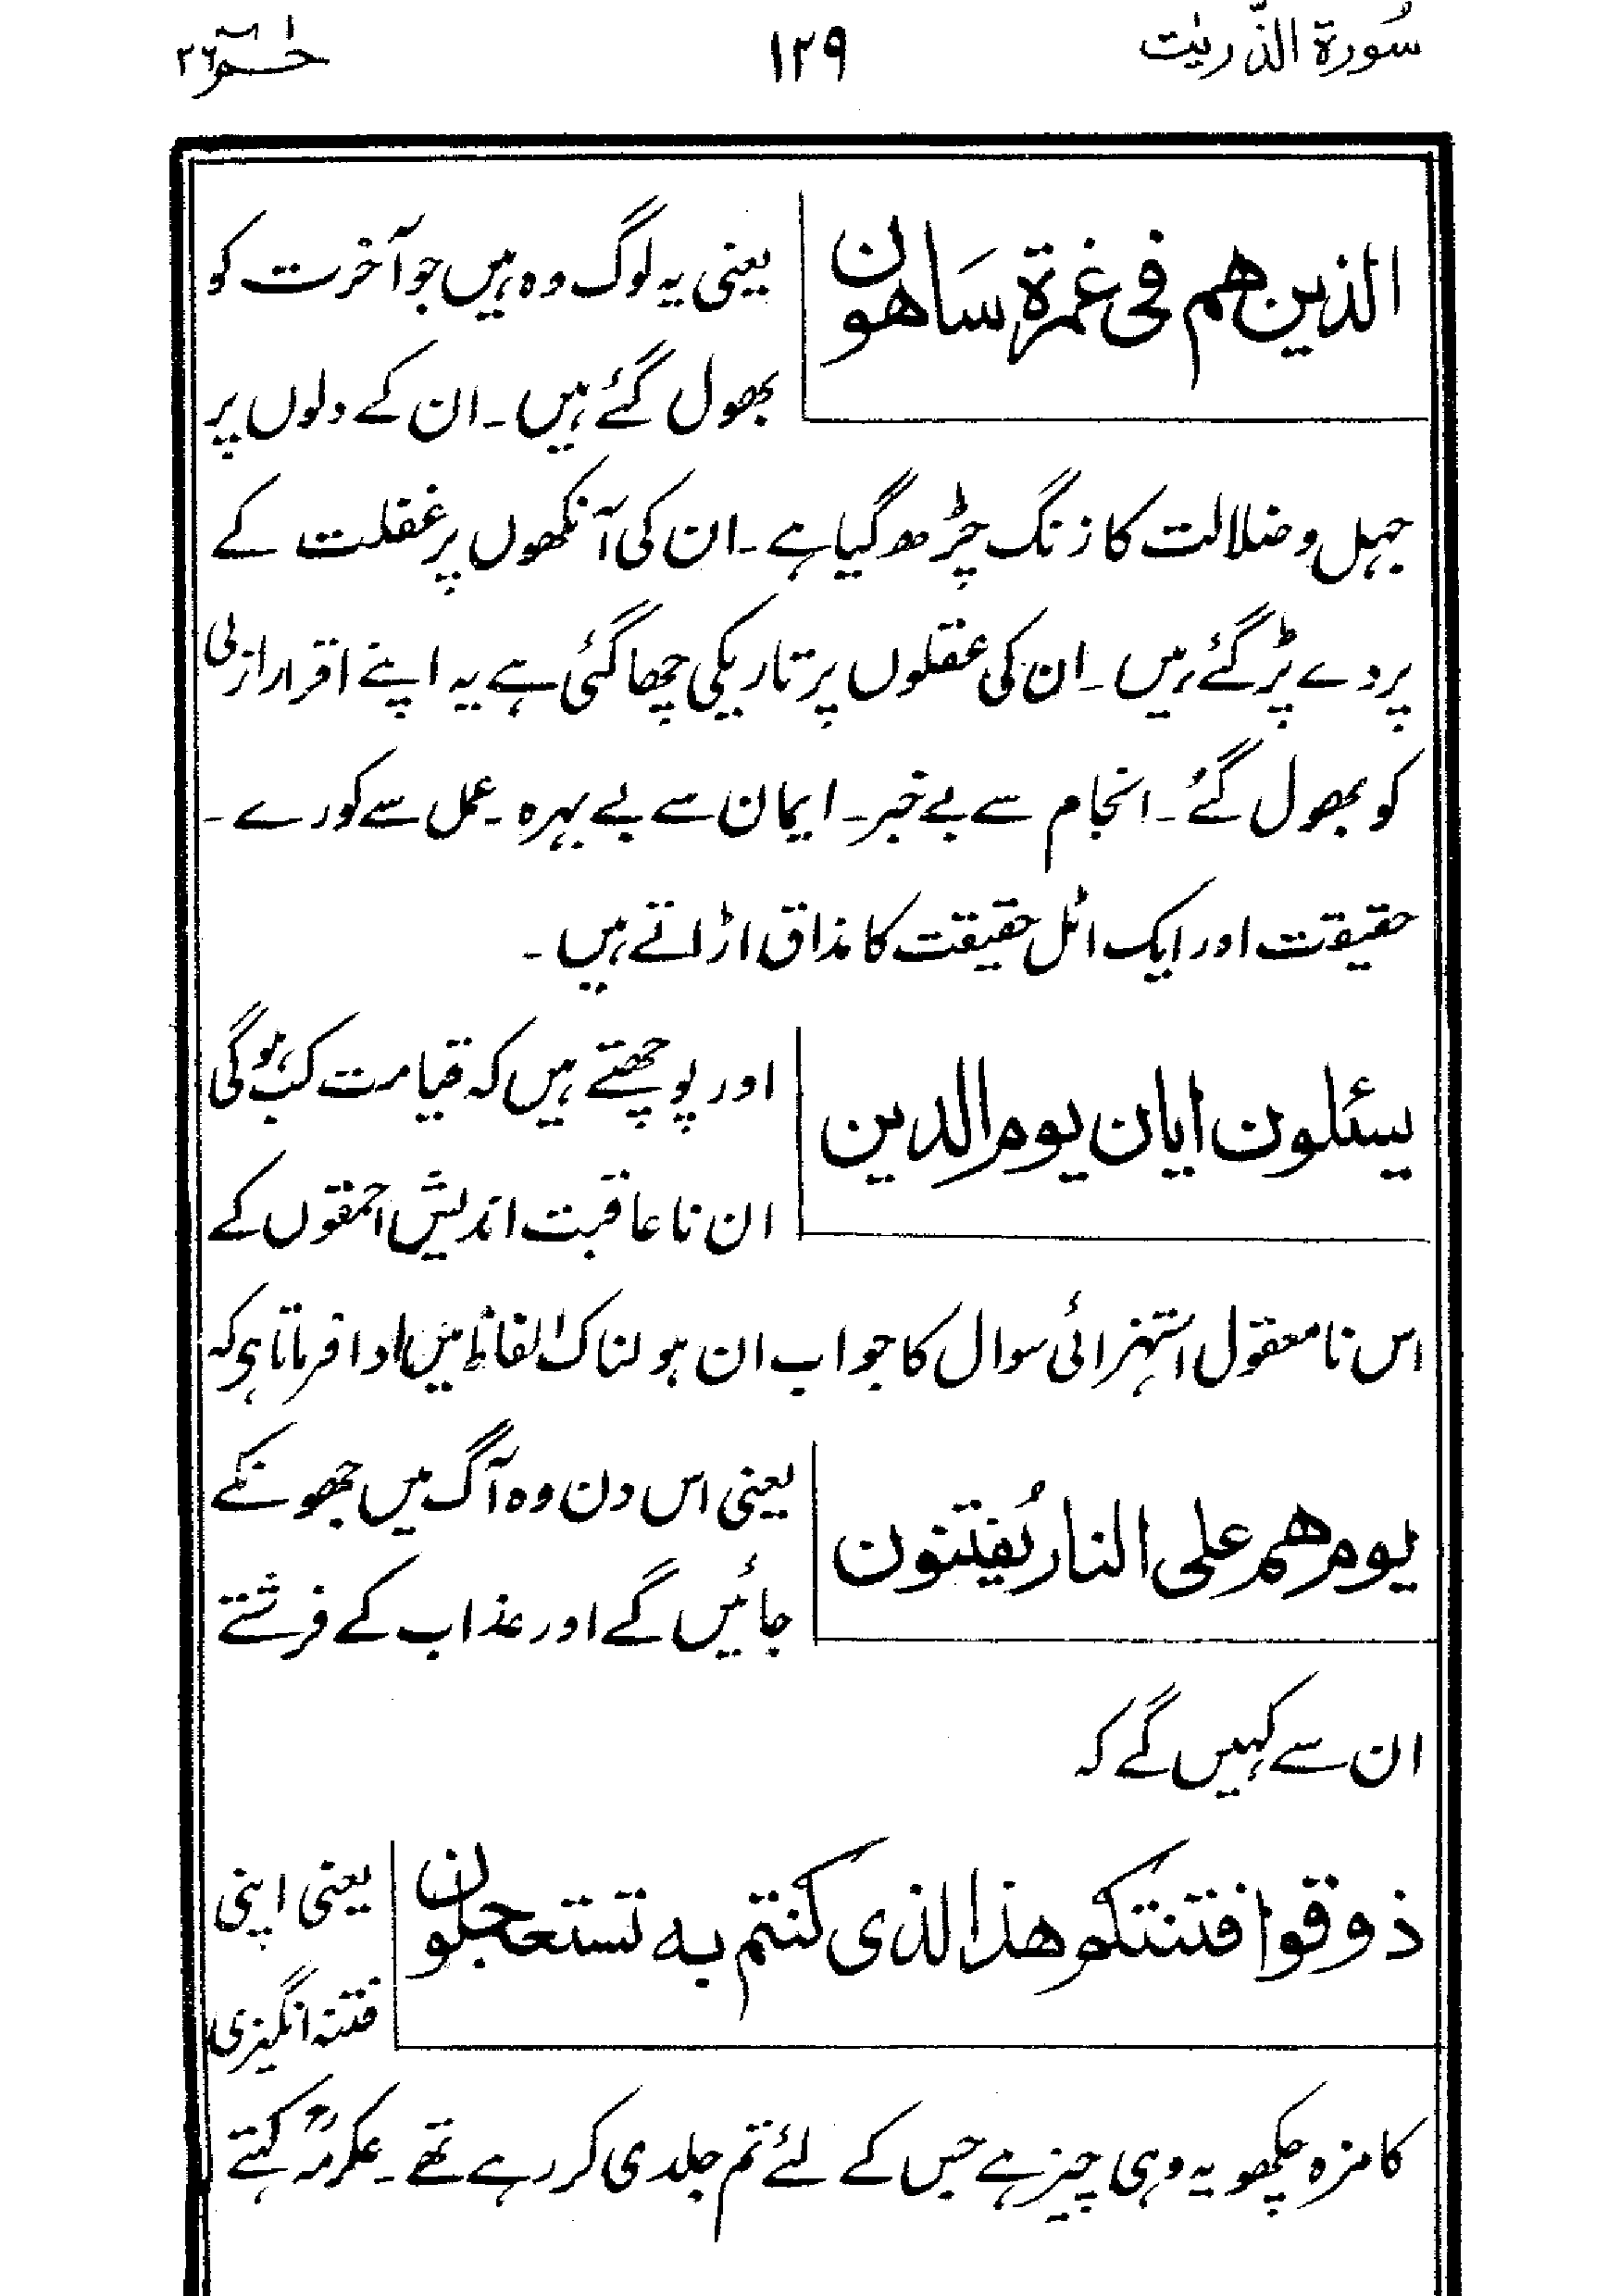 سُورة الذّریٰت ۱۲۹ حٰمٓ ۲۶
الذین هم فی غمرة ساهون
یعنی یہ لوگ وہ ہیں جو آخرت کو
بھول گئے ہیں ۔ ان کے دلوں پر
جہل و ضلالت کا زنگ چڑھ گیا ہے ۔ ان کی آنکھوں پر غفلت کے
پردے پڑ گئے ہیں ۔ ان کی عقلوں پر تاریکی چھا گئی ہے یہ اپنے اقرار ازلی
کو بھول گئے ۔ انجام سے بے خبر ۔ ایمان سے بے بہرہ ۔ عمل سے کورے ۔
حقیقت اور ایک اٹل حقیقت کا مذاق اڑاتے ہیں ۔
یسئلون ایان یوم الدین
اور پوچھتے ہیں کہ قیامت کب ہوگی
ان نا عاقبت اندیش احمقوں کے
اس نا معقول استہزائی سوال کا جواب ان ہولناک الفاظ میں ادا فرماتا ہی کہ
یوم هم علی النار یُفتنون
یعنی اس دن وہ آگ میں جھونکے
جائیں گے اور عذاب کے فرشتے
ان سے کہیں گے کہ
ذوقوا فتنتکم هذا الذی کنتم به تستعجلون
یعنی اپنی
فتنہ انگیزی
کا مزہ چکھو یہ وہی چیز ہے جس کے لئے تم جلدی کر رہے تھے ۔ عکرمہؒ کہتے